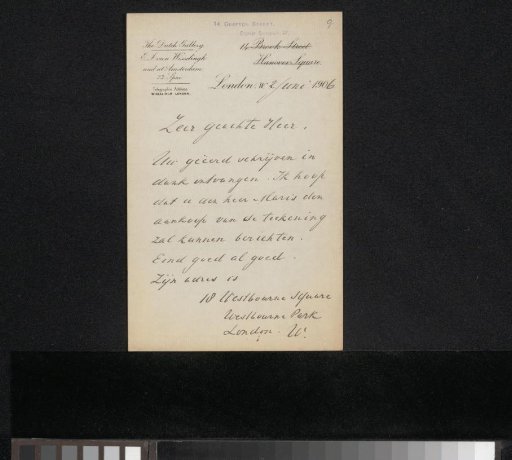 14 GRAFTON STREET,
BOND STREET, W.
9
The Dutch Gallery
E. J. van Wisselingh
and at Amsterdam
14 Brook Street
Hanover Square
Telegraphic Address
WISSELIGH LONDON.
London, W 2 Juni 1906
Zeer geachte Heer,
Uw geëerd schrijven in
dank ontvangen. Ik hoop
dat u den heer Maris den
aankoop van de teekening
zal kunnen berichten.
Eind goed al goed.
Zijn adres is
18 Westbourne Square
Westbourne Park
London. W.